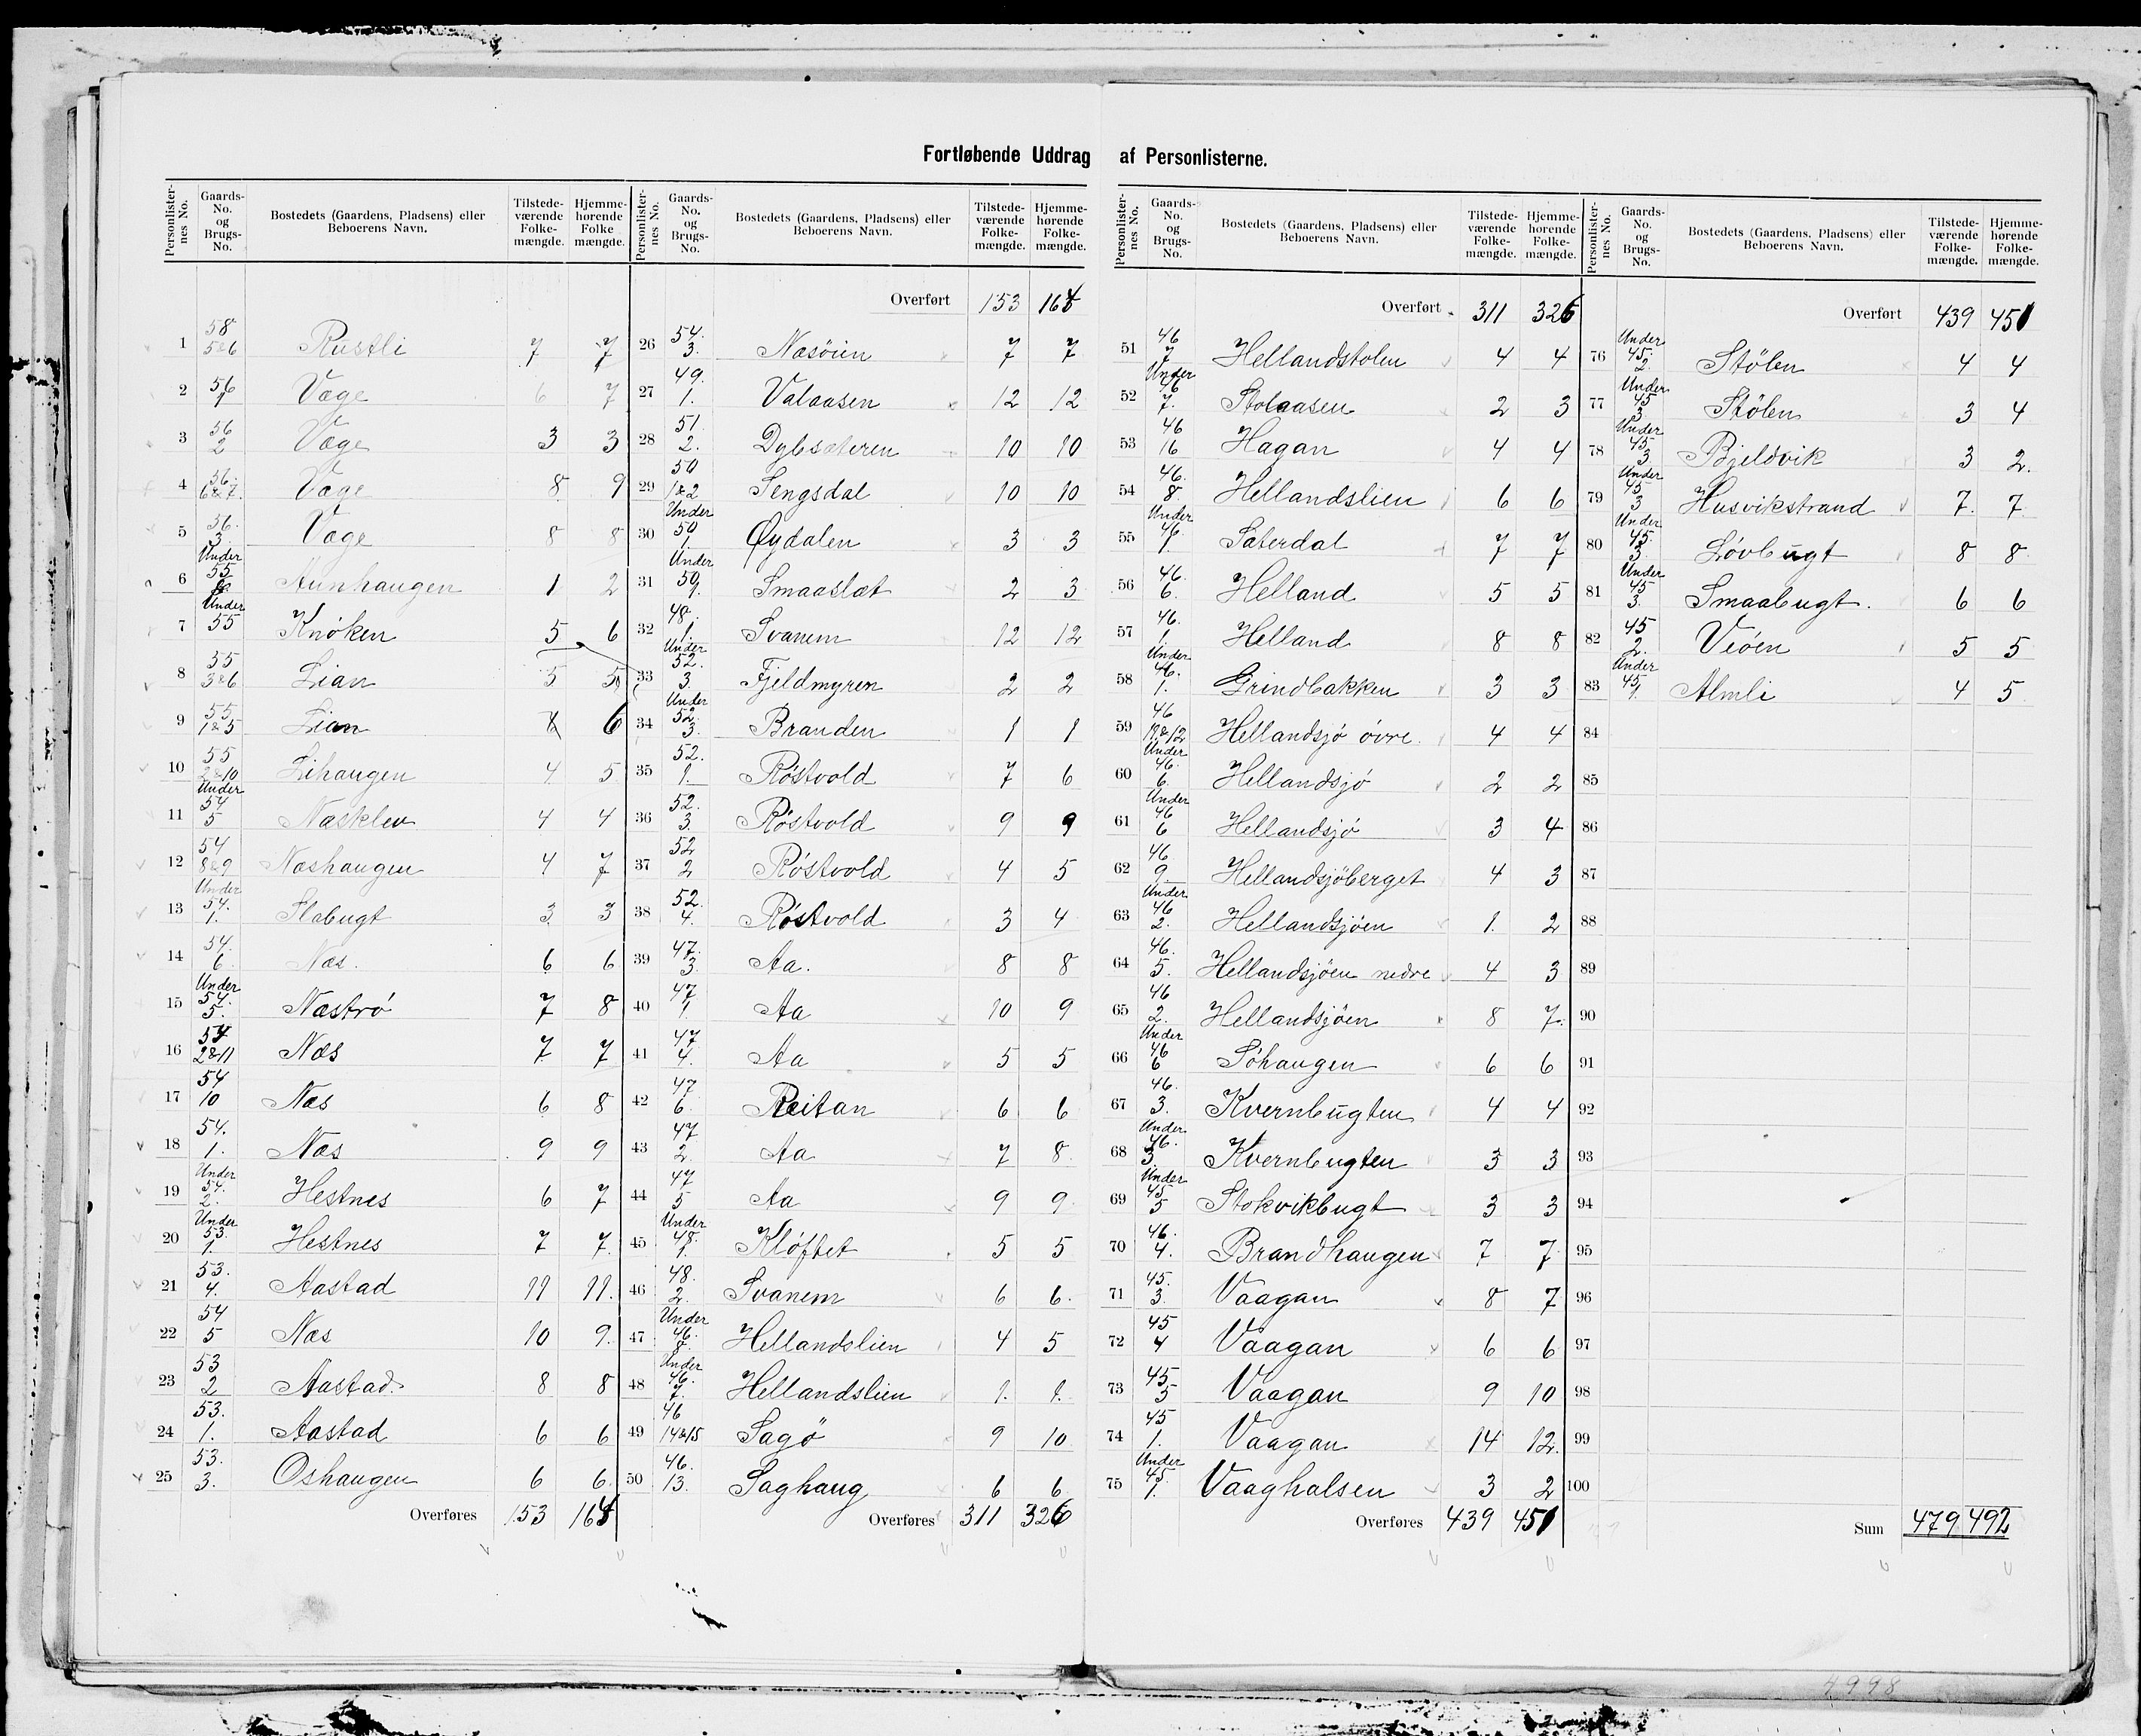 Fortløbende Uddrag af Personlisterne.
Personlister-nes No. | Gaards-No. og Brugs-No. | Bostedets (Gaardens, Pladsens) eller Beboerens Navn. | Tilstede-værende Folke-mængde. | Hjemme-hørende Folke mængde.
1 58 5&6 Rustli 7 7
2 56 Væge 6 7
3 56 2 Væge 3 3
4 56. 6&7. Væge 8 9
5 56. 3. Væge 8 8
6 Under 55 Aunhaugen 1 2
7 Under 55 Knøken 5 6
8 55 3&6 Lian 5 5
9 55 1&5 Lian 6
10 55 2&10 Lihaugen 4 5
11 Under 54 5 Næsklev 4 4
12 54 8&9 Næshaugen 4 7
13 Under 54. 1. Slabugt 3 3
14 54. 6 Næs. 6 6
15 Under 54. 5. Næstrø 7 8
16 54 2&11 Næs 7 7
17 54 10 Næs 6 8
18 54. 1. Næs 9 9
19 Under 54. 2. Hestnes 6 7
20 Under 53. 1. Hestnes 7 7
21 53. 4. Aastad 11 11.
22 54 5 Næs 10 9.
23 53 2 Aastad 8 8
24 53. 1. Aastad 6 6
25 53. 3. Oshaugen 6 6
Overføres 153
Personlister-nes No. | Gaards-No. og Brugs-No. | Bostedets (Gaardens, Pladsens) eller Beboerens Navn. | Tilstede-værende Folke-mængde. | Hjemme-hørende Folke-mængde.
Overført 153
26 54. 3. Næsøien 7 7
27 49. 1. Valaasen 12 12
28 51. 2. Dybsæteren 10 10
29 50 1&2 Sengsdal 10 10
30 Under 50 1. Øydalen 3 3
31 Under 50 1. Smaaslæt 2 3
32 48. 1. Svanem 12 12
33 Under 52. 3 Fjeldmyren 2 2
34 Under 52. 3. Branden 1 1
35 52. 1. Røstvold 7 6
36 52. 3. Røstvold 9 9
37 52 2 Røstvold 4 5
38 52. 4. Røstvold 3 4
39 47. 3. Aa. 8 8
40 47 1. Aa 10 9
41 47 4. Aa 5 5
42 47 6 Reitan 6 6
43 47 2. Aa 7 8
44 47 5 Aa 9 9
45 Under 48. 1. Kløftet 5 5
46 48. 2. Svanem 6 6.
47 Under 46. 8. Hellandslien 4 5
48 Under 46. 7. Hellandslien 1. 1.
49 46 14&15 Sagø 9 10
50 46. 13. Saghaug 6 6
Overføres 311 326
Personlister-nes No. | Gaards-No. og Brugs-No. | Bostedets (Gaardens, Pladsens) eller Beboerens Navn. | Tilstede-værende Folke-mængde. | Hjemme-hørende Folke-mængde.
Overført 311 326
51 46 7 Hellandstolen 4 4
52 Under 46 7. Stolaasen 2 3
53 46 16 Hagan 4 4
54 46. 8. Hellandslien 6 6
55 Under 46. 1. Sæterdal 7 7
56 46. 6. Helland 5 5
57 46. 1. Helland 8 8
58 Under 46. 1. Grindbakken 3 3
59 46 Hellandsjø øvre. 4 4
60 Under 46. 6. Hellandsjø 2 2
61 Under 46 6 Hellandsjø 3 4
62 46 9 Hellandsjøberget 4 3
63 Under 46 2. Hellandsjøen 1. 2
64 46. 5. Hellandsjøen nedre 4 3
65 46 2. Hellandsjøen 8 7.
66 Under 46 6 Søhaugen 6 6
67 46. 3. Kvernbugten 4 4
68 Under 46. 3 Kvernbugten 3 3
69 Under 45 5 Stokvikbugt 3 3
70 46. 4. Brandhaugen 7 7
71 45. 3. Vaagan 8 7
72 45 4 Vaagan 6 6
73 45. 5 Vaagan 9 10
74 45 1. Vaagan 14 12.
75 Under 45. 1. Vaaghalsen 3 2
Overføres 439 451
Personlister-nes No. | Gaards-No. og Brugs-No. | Bostedets (Gaardens, Pladsens) eller Beboerens Navn. | Tilstede-værende Folke-mængde. | Hjemme-hørende Folke-mængde.
Overført 439 451
76 Under 45. 2. Stølen 4 4
77 Under 45 3. Stølen 3 4
78 Under 45. 3 Bjeldvik 3 2.
79 Under 45 3 Husvikstrand 7. 7
80 Under 45. 3. Løvbugt 8 8
81 Under 45 3. Smaabugt. 6 6
82 45 2. Veøen 5 5
83 Under 45. 1. Almli 4 5
84
85
86
87
88
89
90
91
92
93
94
95
96
97
98
99
100
Sum 479 492
4998